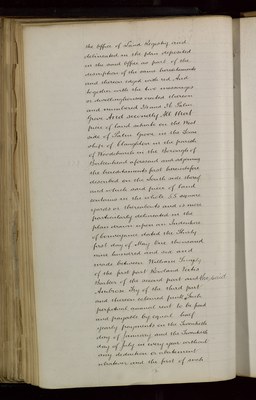 the Office of Land Registry and
delineated in the plan deposited
in the said Office as part of the
description of the same hereditaments
and thereon edged with red And
together with the two messuages
or dwellinghouses erected thereon
and numbered 12 and 14 Palm
Grove And secondly All that
piece of land situate on the West
side of Palm Grove in the Town
ship of Claughton in the parish
of Bidston in the Borough of
Birkenhead aforesaid and adjoining
the hereditaments first hereinbefore
described on the South side thereof
and which said piece of land
contains in the whole 55 square
yards or thereabouts and is more
particularly delineated in the
plan drawn upon an Indenture
of conveyance dated the Thirty
first day of May One thousand
nine hundred and six and
made between William
of the first part Rowland
of the second part and
Ambrose of the third part
and thereon coloured pink Such
perpetual annual rent to be paid
and payable by equal half
yearly payments on the Twentieth
day of January and the Twentieth
day of July in every year without
any deduction or abatement
whatsoever and the first of such